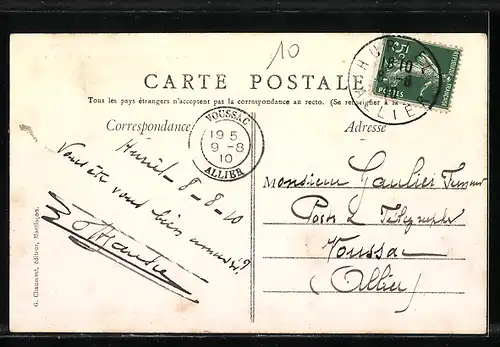 10
CARTE POSTALE
Tous les pays étrangers n'acceptent pas la correspondance au recto. (Se renseigner à la
Correspondance
Adresse
VOUSSAC
19 5
9 - 8
10
ALLIER
HU
10
8
ALLIER
5c
POSTES
Huriel - 8 - 8 - 10
Vous êtes vous bien amusé?
Monsieur Gaulier
Postes & Télégraphes
Voussac
(Allier)
G. Chaumont, éditeur, Montluçon.